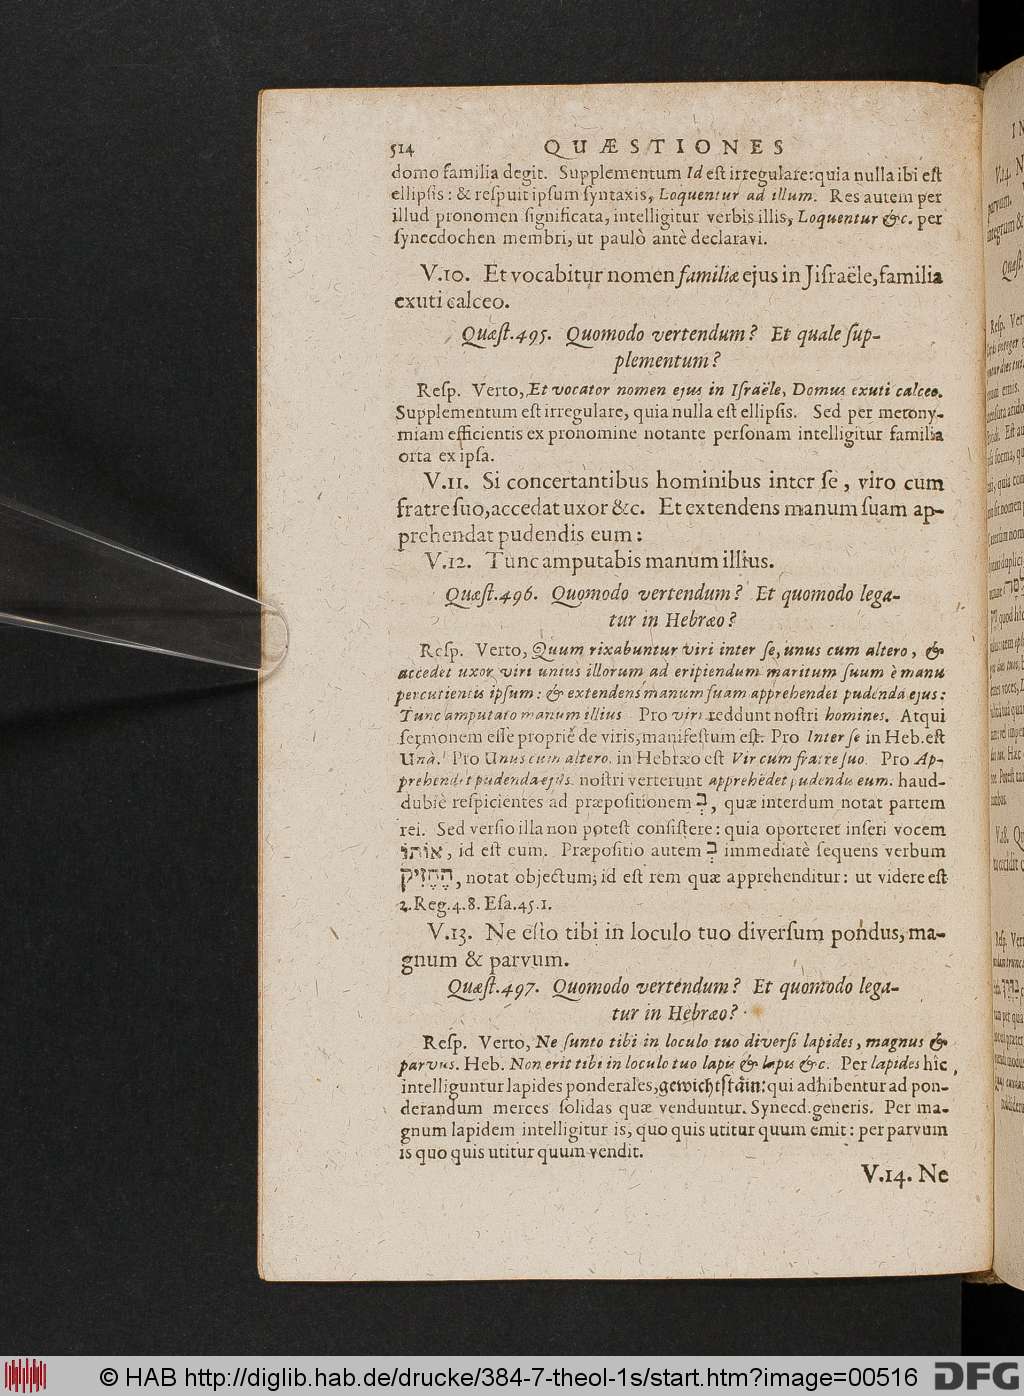 514 QUÆSTIONES
domo familia degit. Supplementum Id eſt irregulare: quia nulla ibi eſt
ellipſis: & reſpuit ipſum ſyntaxis, Loquentur ad illum. Res autem per
illud pronomen ſignificata, intelligitur verbis illis, Loquentur &c. per
ſynecdochen membri, ut paulò antè declaravi.
V.10. Et vocabitur nomen familiæ ejus in Jiſraële, familia
exuti calceo.
Quæſt.495. Quomodo vertendum? Et quale ſup-
plementum?
Reſp. Verto, Et vocator nomen ejus in Iſraële, Domus exuti calceo.
Supplementum eſt irregulare, quia nulla eſt ellipſis. Sed per metony-
miam efficientis ex pronomine notante perſonam intelligitur familia
orta ex ipſa.
V.11. Si concertantibus hominibus inter ſe, viro cum
fratre ſuo, accedat uxor &c. Et extendens manum ſuam ap-
prehendat pudendis eum:
V.12. Tunc amputabis manum illius.
Quæſt.496. Quomodo vertendum? Et quomodo lega-
tur in Hebræo?
Reſp. Verto, Quum rixabuntur viri inter ſe, unus cum altero, &
accedet uxor viri unius illorum ad eripiendum maritum ſuum è manu
percutientis ipſum: & extendens manum ſuam apprehendet pudenda ejus:
Tunc amputato manum illius. Pro viri reddunt noſtri homines. Atqui
ſermonem eſſe propriè de viris, manifeſtum eſt. Pro Inter ſe in Heb. eſt
Unà. Pro Unus cum altero, in Hebræo eſt Vir cum fratre ſuo. Pro Ap-
prehendet pudenda ejus, noſtri verterunt apprehēdet pudendis eum. haud-
dubiè reſpicientes ad præpoſitionem בְּ, quæ interdum notat partem
rei. Sed verſio illa non poteſt conſiſtere: quia oporteret inſeri vocem
אוֹתוֹ, id eſt eum. Præpoſitio autem בְּ immediatè ſequens verbum
הֶחֱזִיק, notat objectum, id eſt rem quæ apprehenditur: ut videre eſt
2.Reg.4.8. Eſa.45.1.
V.13. Ne eſto tibi in loculo tuo diverſum pondus, ma-
gnum & parvum.
Quæſt.497. Quomodo vertendum? Et quomodo lega-
tur in Hebræo?
Reſp. Verto, Ne ſunto tibi in loculo tuo diverſi lapides, magnus &
parvus. Heb. Non erit tibi in loculo tuo lapis & lapis &c. Per lapides hîc
intelliguntur lapides ponderales, gewichtſtäin: qui adhibentur ad pon-
derandum merces ſolidas quæ venduntur. Synecd. generis. Per ma-
gnum lapidem intelligitur is, quo quis utitur quum emit: per parvum
is quo quis utitur quum vendit.
V.14. Ne
© HAB http://diglib.hab.de/drucke/384-7-theol-1s/start.htm?image=00516
DFG